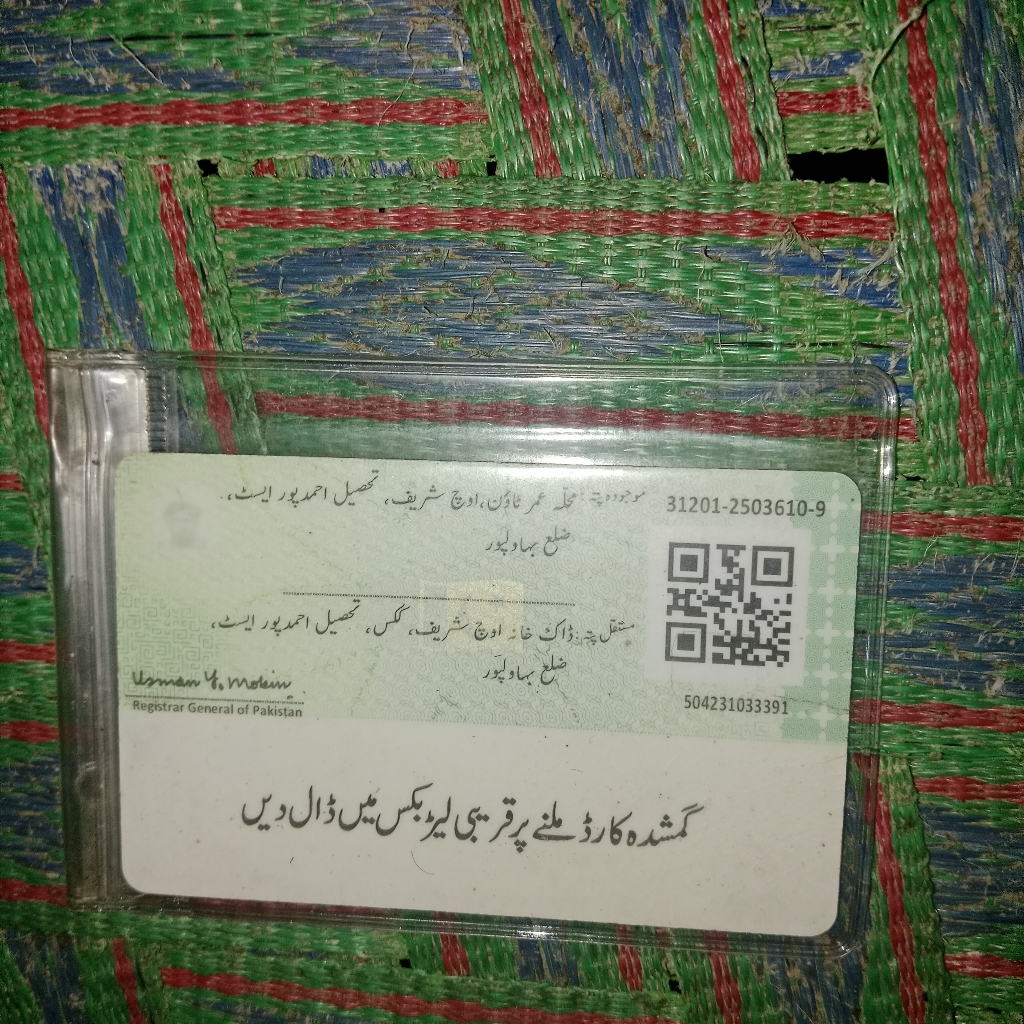 موجودہ پتہ: محلّہ عمر ٹاؤن، اوچ شریف، تحصیل احمد پور ایسٹ،
31201-2503610-9
ضلع بہاولپور
مستقل پتہ: ڈاک خانہ اوچ شریف، ککس، تحصیل احمد پور ایسٹ،
ضلع بہاولپور
Usman Y. Mobin
Registrar General of Pakistan
504231033391
گمشدہ کارڈ ملنے پر قریبی لیٹر بکس میں ڈال دیں